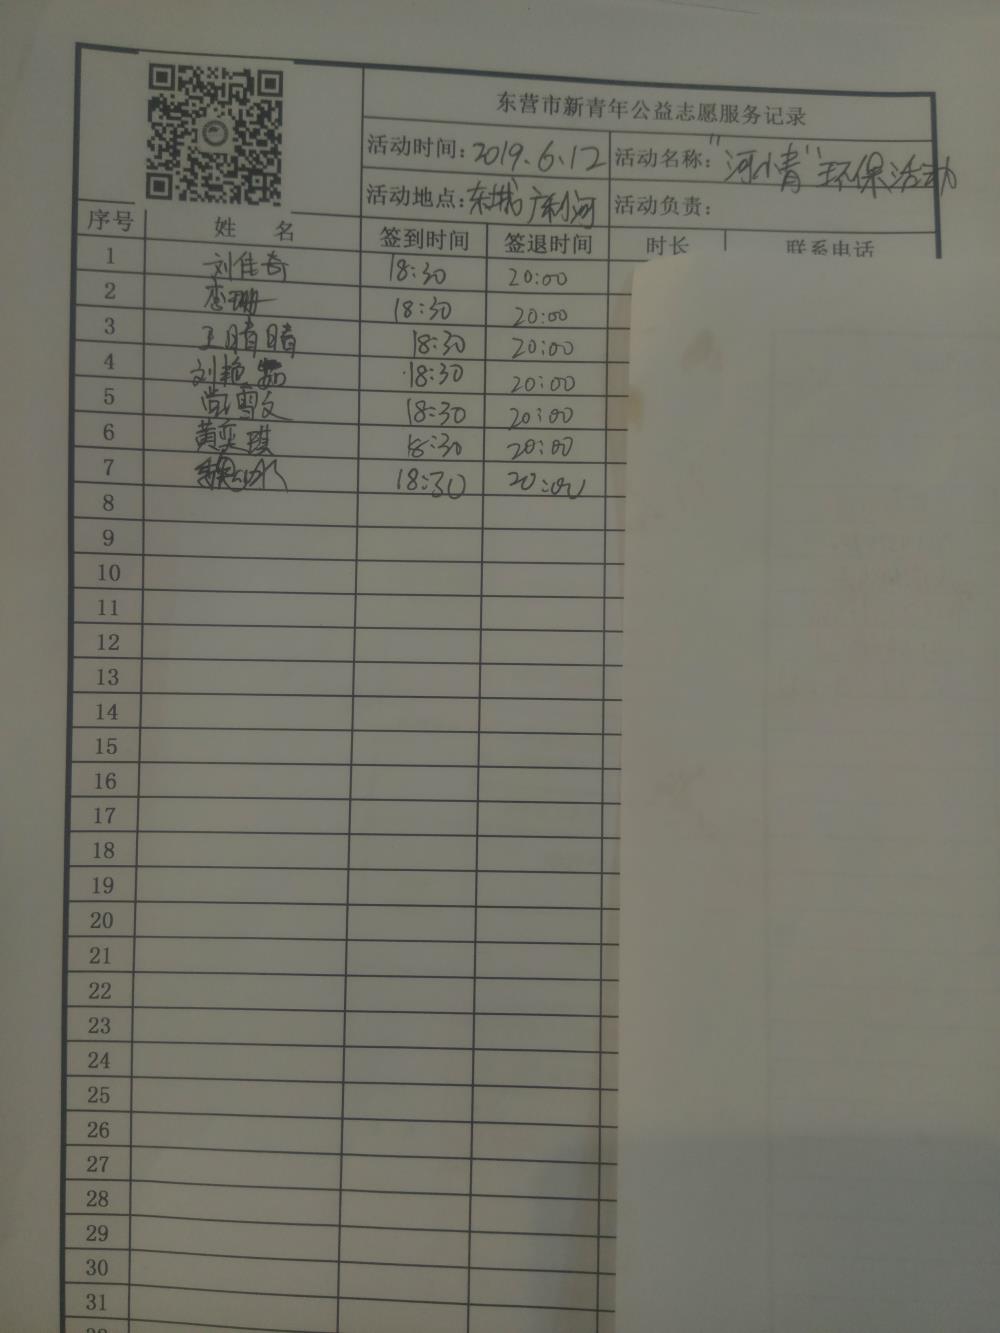 东营市新青年公益志愿服务记录
活动时间：2019.6.12 活动名称："河小青"环保活动
活动地点：东城广利河 活动负责：
序号 姓 名 签到时间 签退时间 时长 联系电话
1 刘佳奇 18:30 20:00
2 李珊 18:30 20:00
3 王晴晴 18:30 20:00
4 刘艳 18:30 20:00
5 尚雪文 18:30 20:00
6 黄奕琪 18:30 20:00
7 18:30 20:00
8
9
10
11
12
13
14
15
16
17
18
19
20
21
22
23
24
25
26
27
28
29
30
31